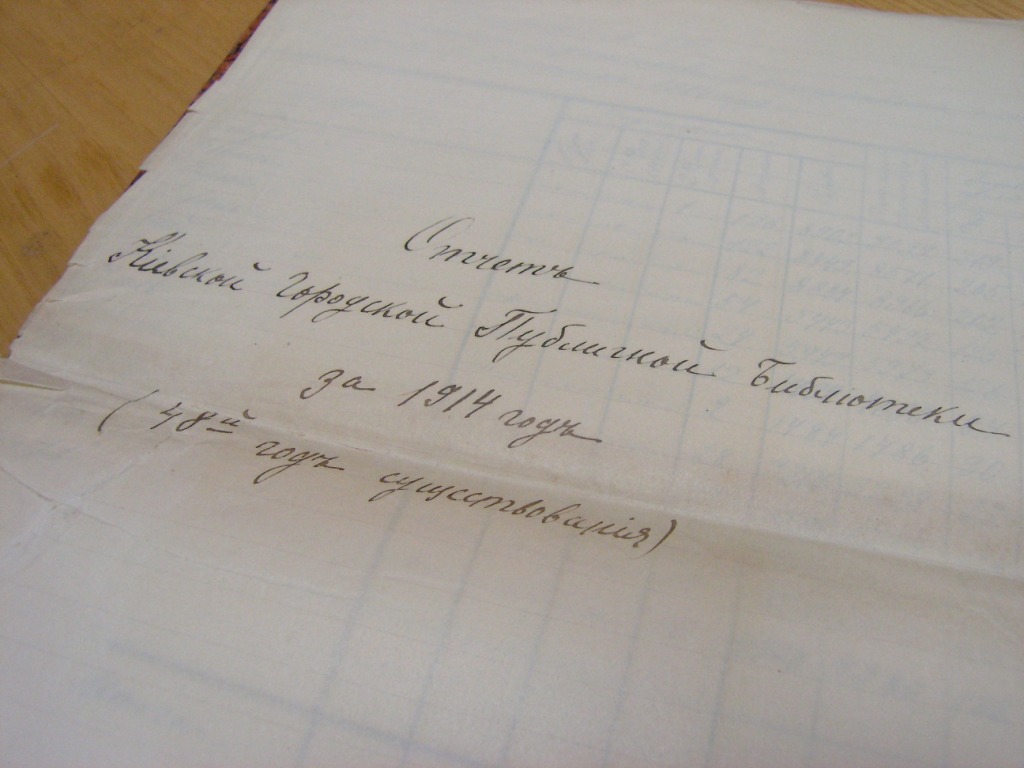 Отчетъ
Кіевской городской Публичной Библіотеки
за 1914 годъ
(48й годъ существованія)